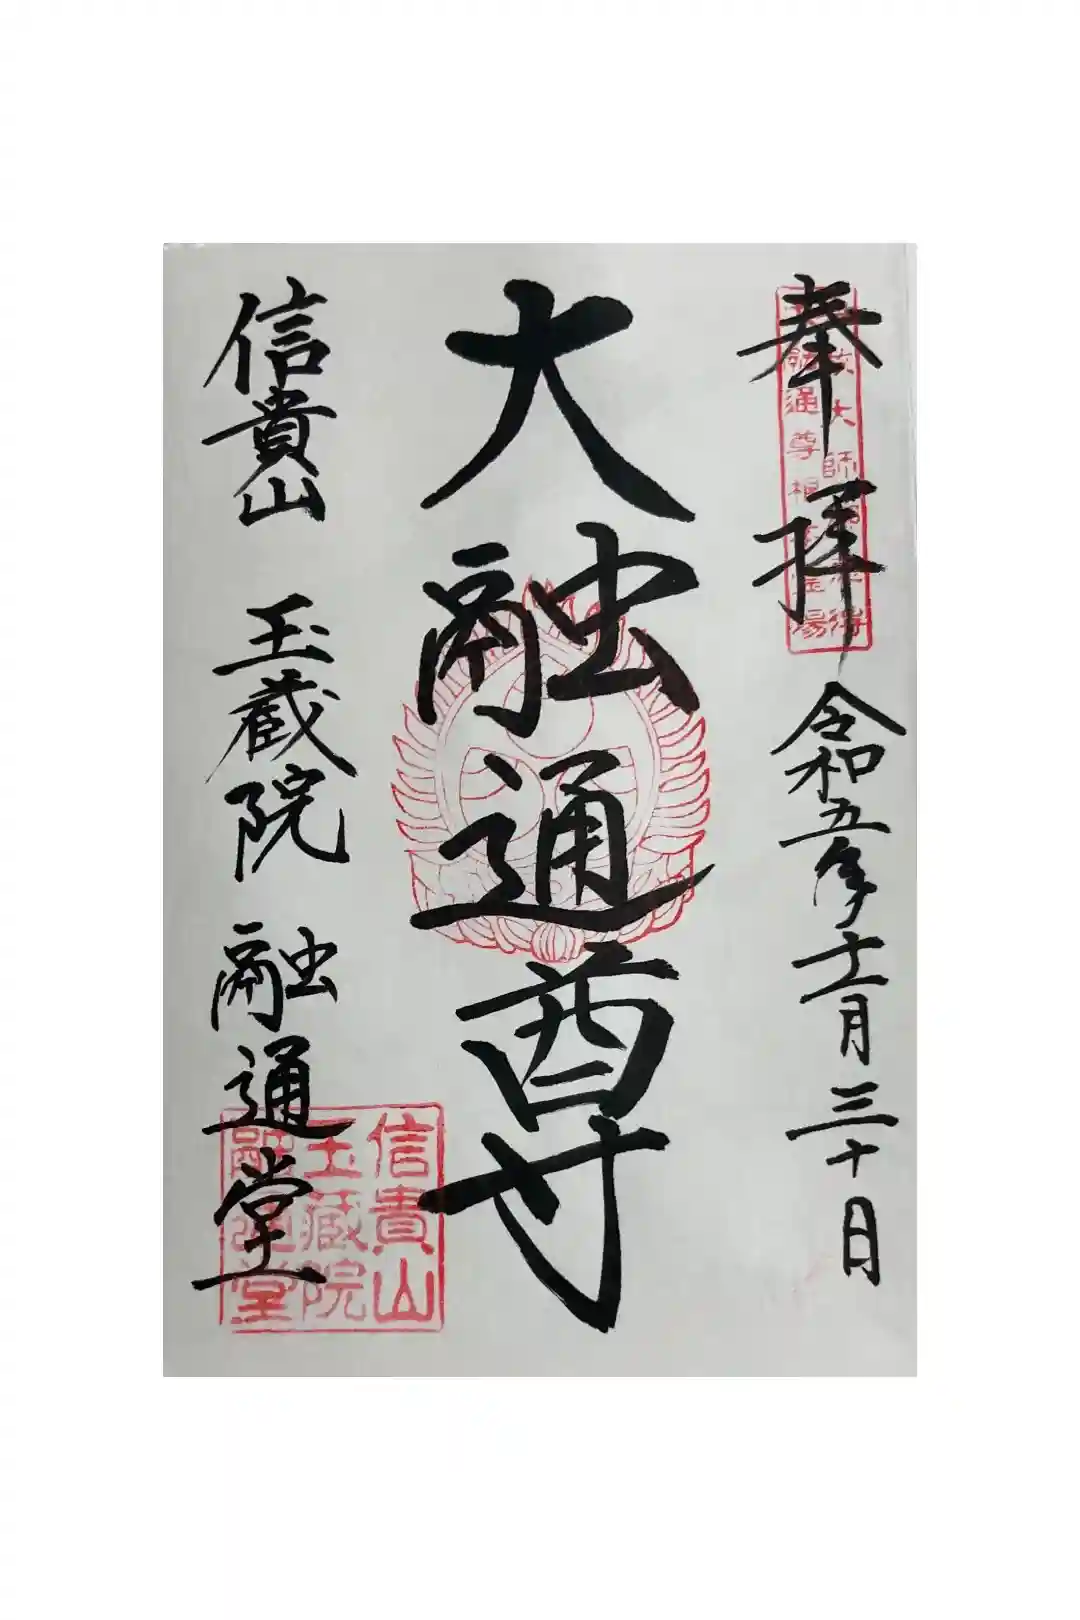 奉拝
令和五年十一月三十日
大師
得
融通尊根
場
大融通尊
信貴山 玉蔵院 融通堂
信貴山
玉蔵院
融通堂